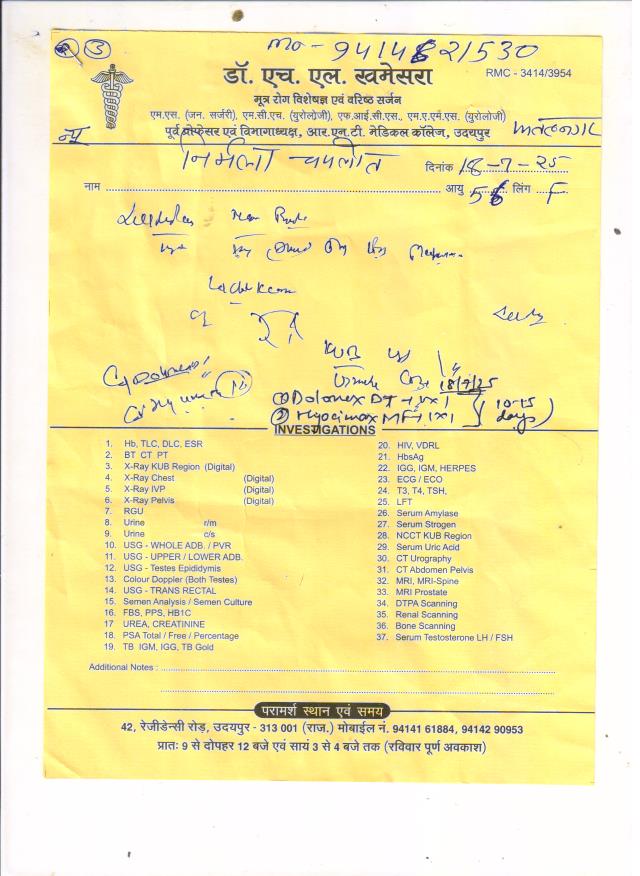 3
mo - 9414821530
डॉ. एच. एल. खमेसरा
RMC - 3414/3954
मूत्र रोग विशेषज्ञ एवं वरिष्ठ सर्जन
एम.एस. (जन. सर्जरी), एम.सी.एच. (युरोलोजी), एफ.आई.सी.एस., एम.ए.एम.एस. (युरोलोजी)
पूर्व प्रोफेसर एवं विभागाध्यक्ष, आर.एन.टी. मेडिकल कॉलेज, उदयपुर
निर्मला चपलोत
दिनांक 18-7-25
नाम
आयु 56 लिंग F
18/7/25
① Dolonex DT - 1x1
② Hyocimax MF - 1x1 (10-15 days)
INVESTIGATIONS
1. Hb, TLC, DLC, ESR
2. BT CT PT
3. X-Ray KUB Region (Digital)
4. X-Ray Chest (Digital)
5. X-Ray IVP (Digital)
6. X-Ray Pelvis (Digital)
7. RGU
8. Urine r/m
9. Urine c/s
10. USG - WHOLE ADB. / PVR
11. USG - UPPER / LOWER ADB.
12. USG - Testes Epididymis
13. Colour Doppler (Both Testes)
14. USG - TRANS RECTAL
15. Semen Analysis / Semen Culture
16. FBS, PPS, HB1C
17 UREA, CREATININE
18. PSA Total / Free / Percentage
19. TB IGM, IGG, TB Gold
20. HIV, VDRL
21. HbsAg
22. IGG, IGM, HERPES
23. ECG / ECO
24. T3, T4, TSH,
25. LFT
26. Serum Amylase
27. Serum Strogen
28. NCCT KUB Region
29. Serum Uric Acid
30. CT Urography
31. CT Abdomen Pelvis
32. MRI, MRI-Spine
33. MRI Prostate
34. DTPA Scanning
35. Renal Scanning
36. Bone Scanning
37. Serum Testosterone LH / FSH
Additional Notes :
परामर्श स्थान एवं समय
42, रेजीडेन्सी रोड़, उदयपुर - 313 001 (राज.) मोबाईल नं. 94141 61884, 94142 90953
प्रातः 9 से दोपहर 12 बजे एवं सायं 3 से 4 बजे तक (रविवार पूर्ण अवकाश)